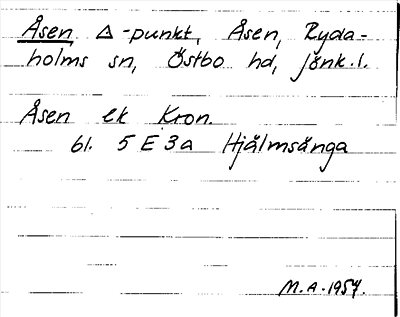 Åsen Δ-punkt, Åsen, Ryda-
holms sn, Östbo hd, Jönk.l.
Åsen ek Kron.
61. 5 E 3a Hjälmsänga
M.A. 1957.